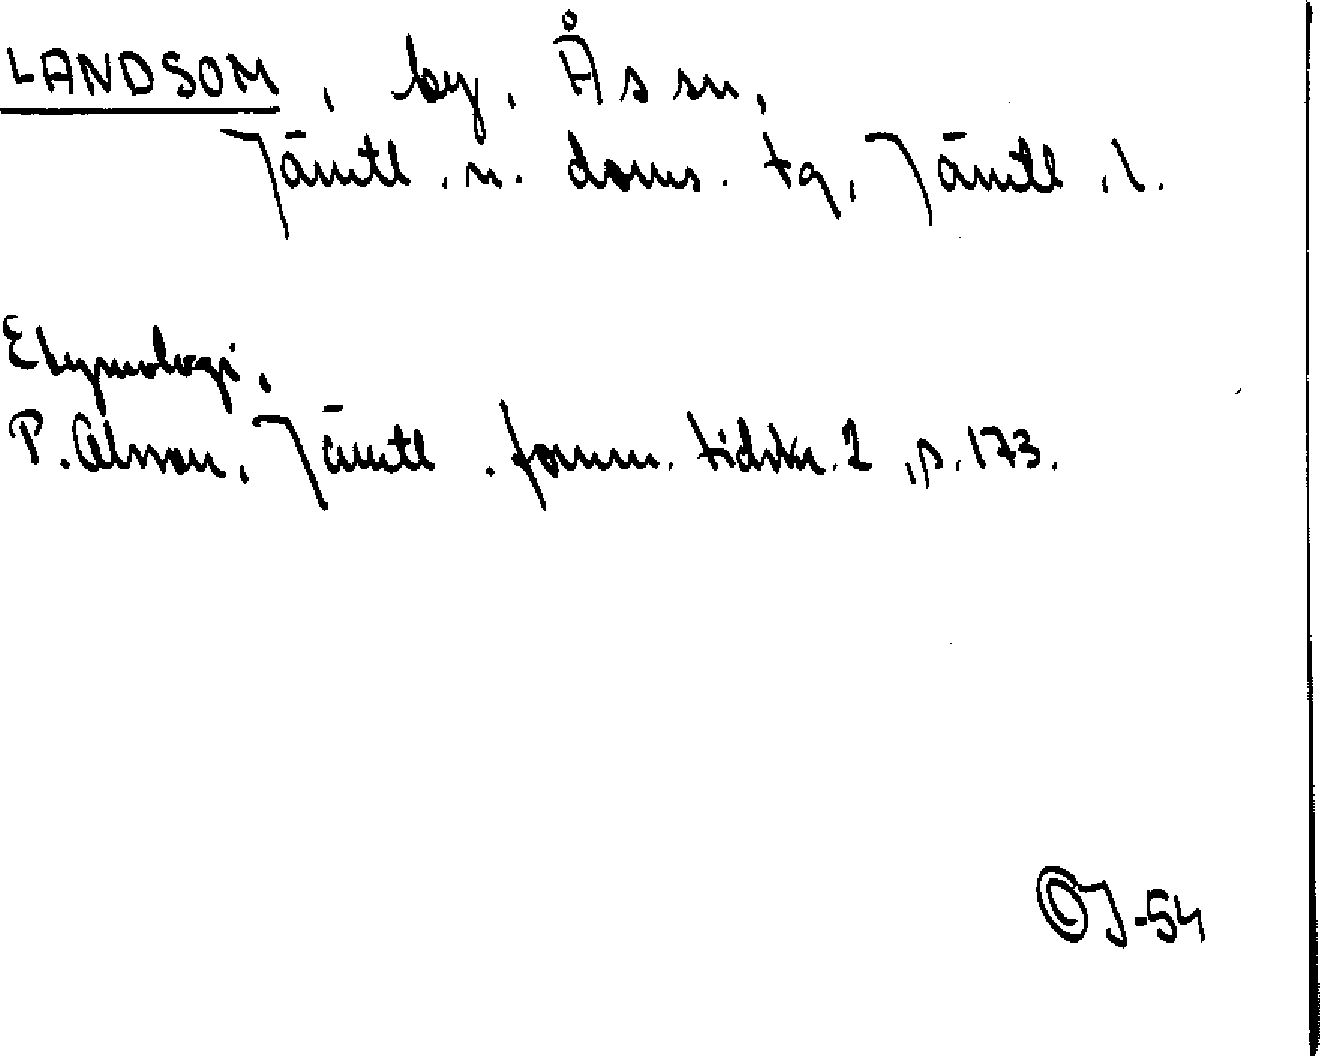 LANDSOM, by, Ås sn,
Jämtl. n. doms. tg, Jämtl. l.
Etymologi.
P. Olsson, Jämtl. fornm. tidskr. 2, s. 173.
OJ-54